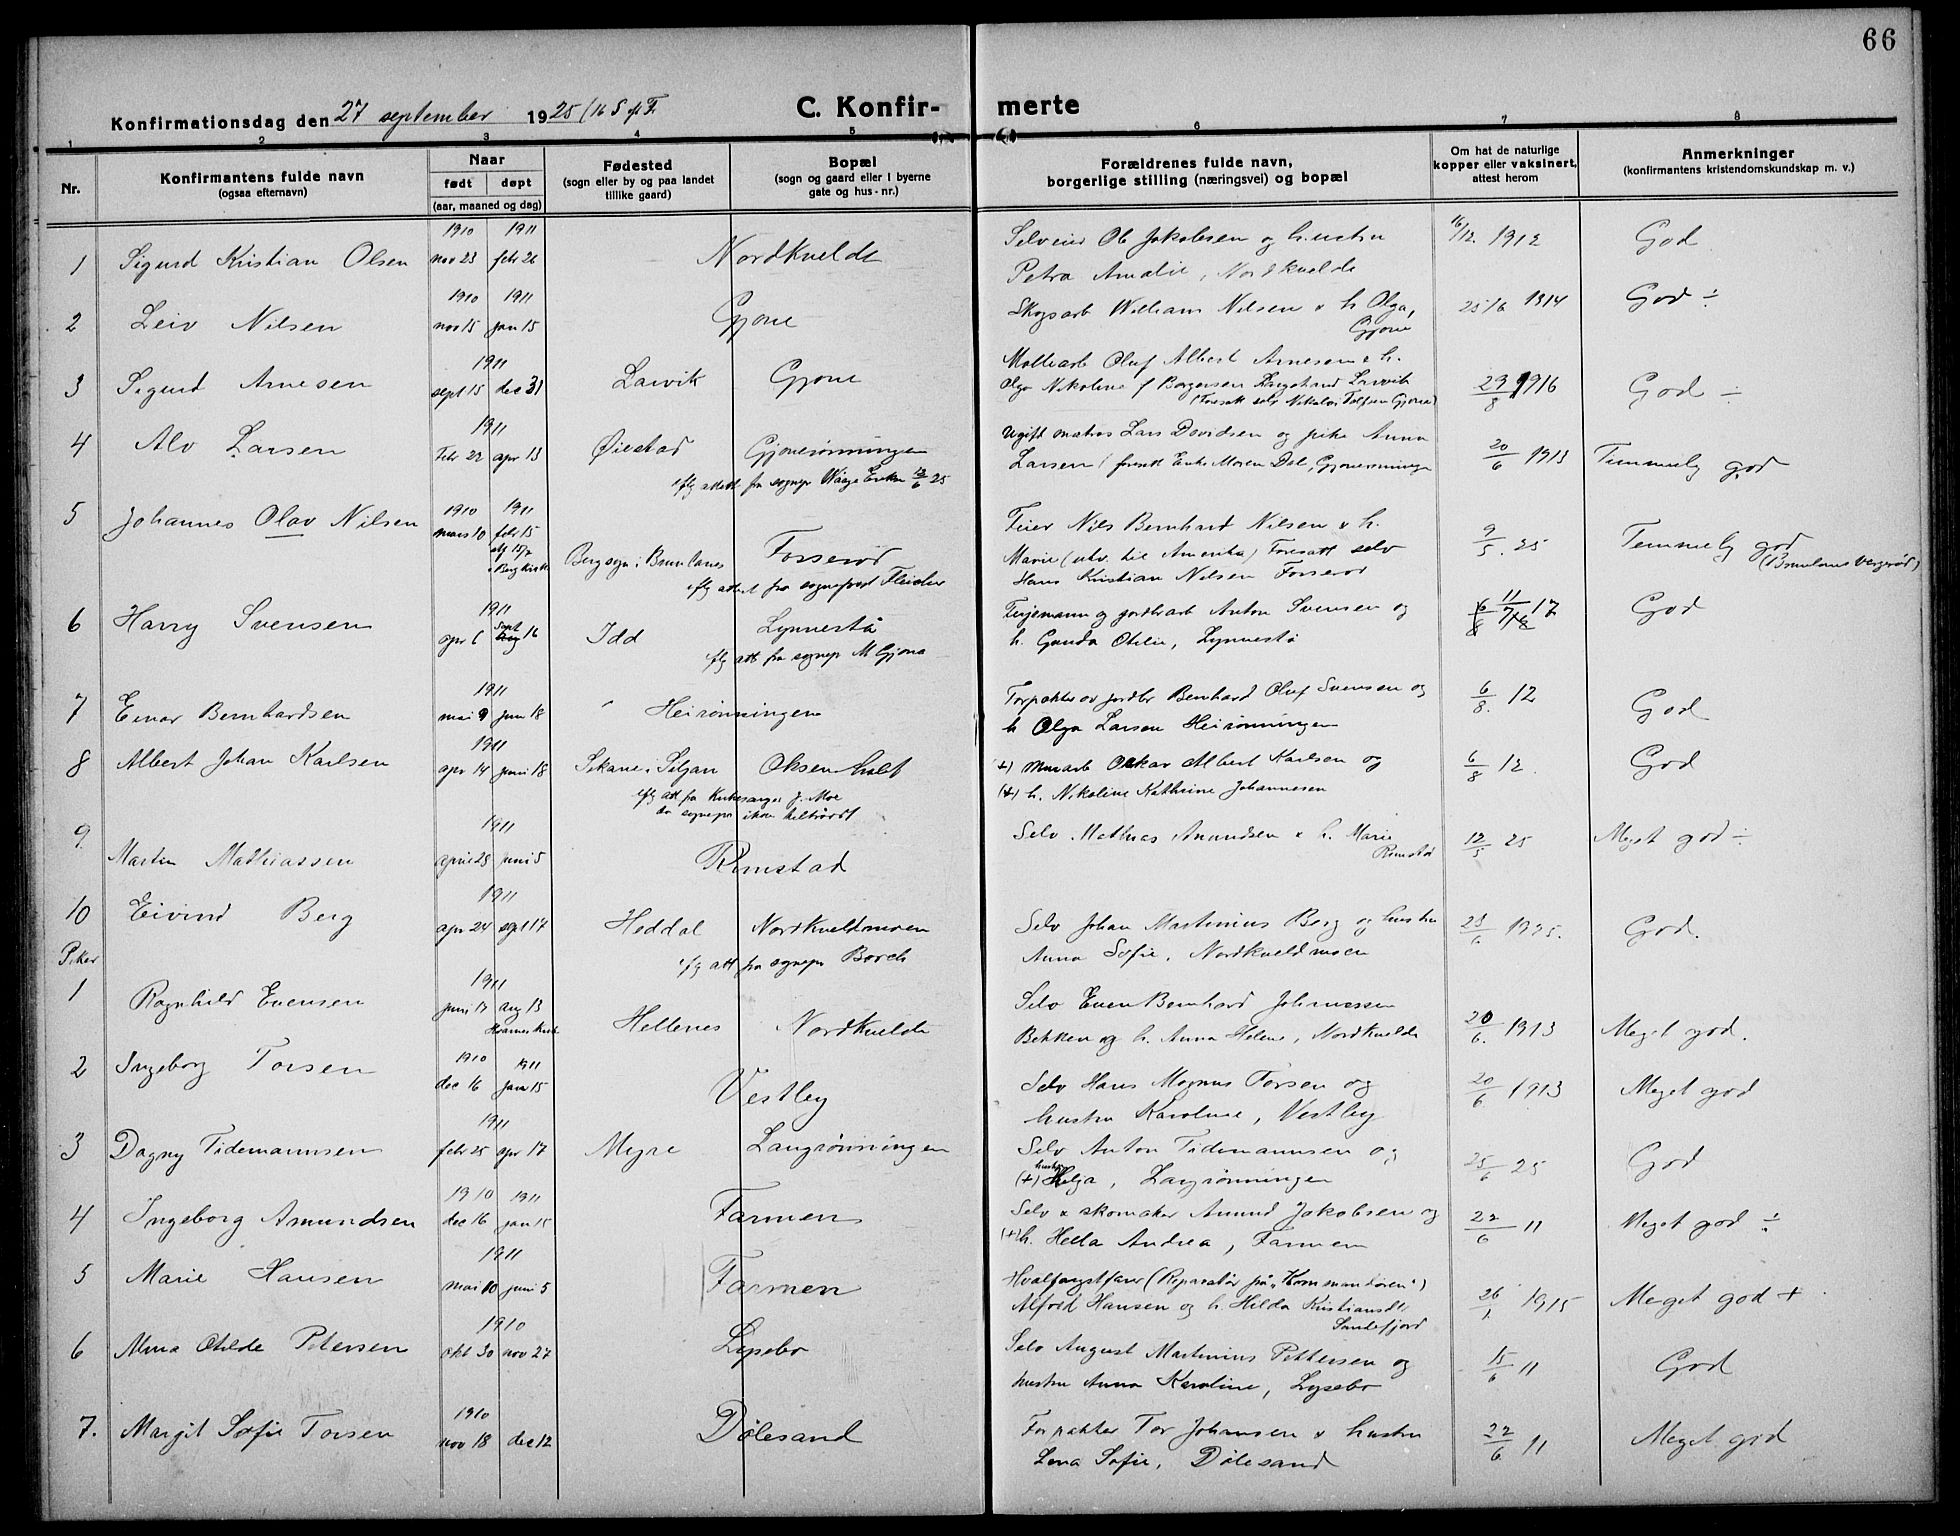 66
C. Konfirmerte
Konfirmationsdag den 27 september 1925 (16 S. e. T.
1 2 3 4 5 6 7 8
Nr.
Konfirmantens fulde navn
(ogsaa efternavn)
Naar
født døpt
(aar, maaned og dag)
Fødested
(sogn eller by og paa landet
tillike gaard)
Bopæl
(sogn og gaard eller i byerne
gate og hus-nr.)
Forældrenes fulde navn,
borgerlige stilling (næringsvei) og bopæl
Om hat de naturlige
kopper eller vaksinert,
attest herom
Anmerkninger
(konfirmantens kristendomskundskap m. v.)
1910 1911
1 Sigurd Kristian Olsen nov 23 febr 26 Nordkvelde Selveier Ole Jakobsen og hustru 16/12 1912 God
Petra Amalie, Nordkvelde
1910 1911
2 Leiv Nilsen nov 15 jan 15 Gjone Skogsarb William Nilsen & h Olga, 25/6 1914 God ÷
Gjone
1911
3 Sigurd Arnesen sept 15 dec 31 Larvik Gjone Møllearb Oluf Albert Arnesen & h.
Olga Nikoline f Borgersen Langestrand Larvik 29/8 1916 God ÷
(Foresatt selv Nikolai Tolfsen Gjone)
1911
4 Alv Larsen Febr 22 apr 13 Øiestad Gjonerønningen Ugift matros Lars Davidsen og pike Anna 20/6 1913 Temmelig god
Larsen (foresatt Enke Maren Dal, Gjonerønningen
iflg attest fra sognepr Waage 12/6 25
1910 1911
5 Johannes Olav Nilsen mars 10 febr 15 Berg sogn i Brunlanes Forserød Feier Nils Bernhard Nilsen & h. 9/5. 25 Temmelig god
stf 15/7 i Berg Kirke
Marie (utv. til Amerika) Foresatt selv
Hans Kristian Nilsen Forserød
iflg attest fra sogneprest Fleischer
1911
6 Harry Svensen apr 6 sept 16 Idd Lynnestå Ferjemann og jordbrarb Anton Svensen og 17 God
h. Gunda Otilie, Lynnestø
iflg att fra sognepr M Gjona
1911
7 Einar Bernhardsen mai 9 juni 18 Heirønningen Forpakter av jordbr Bernhard Oluf Svensen og 6/8. 12 God
h Olga Larsen Heirønningen
1911
8 Albert Johan Karlsen apr 14 juni 18 Skane i Siljan Oksenholt +) Murarb Oskar Albert Karlsen og 6/8 12. God
(+) h. Nikoline Kathrine Johannesen
iflg att fra Kirkesanger J. Moe
da sognepr ikke tiltrådt
1911
9 Martin Mathiassen april 23 juni 5 Rimstad Selv. Mathias Amundsen & h. Marie 12/5 25 Meget god ÷
Rimstad
1911
10 Eivind Berg apr 24 sept 17 Heddal Nordkveldmoen Selv Johan Martinius Berg og hustru 23/6 1925. God.
Anna Sofie, Nordkveldmoen
iflg att fra sognepr Borch
Piker
1911
1 Ragnhild Evensen juni 17 aug 13 Hellenes Nordkvelde Selv Even Bernhard Johannessen 20/6. 1913 Meget god.
Hvarnes kirke
Bekken og h. Anna Helene, Nordkvelde
1910 1911
2 Ingeborg Torsen dec 16 jan 15 Vestby Selv Hans Magnus Torsen og 20/6 1913 Meget god
hustru Karoline, Vestby
1911
3 Dagny Tidemannsen febr 25 apr 17 Myre Langrønningen Selv Anton Tidemannsen og 25/6 25 God
(+) hustru Helga, Langrønningen
1910 1911
4 Ingeborg Amundsen dec 16 jan 15 Farmen Selv & skomaker Amund Jakobsen og 22/6 11 Meget god ÷
(+) h. Hella Andrea, Farmen
1911
5 Marie Hansen mai 10 juni 5 Farmen Hvalfangstfarer (Reparatør på "Kommandøren") 26/1. 1915 Meget god +
Alfred Hansen og h. Hilda Kristiansdtr
Sandefjord
1910
6 Alma Otilde Petersen okt 30 nov 27 Lysebo Selv August Martinius Pettersen og 15/6 11 God
hustru Anna Karoline, Lysebo
1910
7. Margit Sofie Torsen nov 18 dec 12 Dølesand Forpakter Tor Johansen & hustru 22/6. 11 Meget god
Lena Sofie, Dølesand